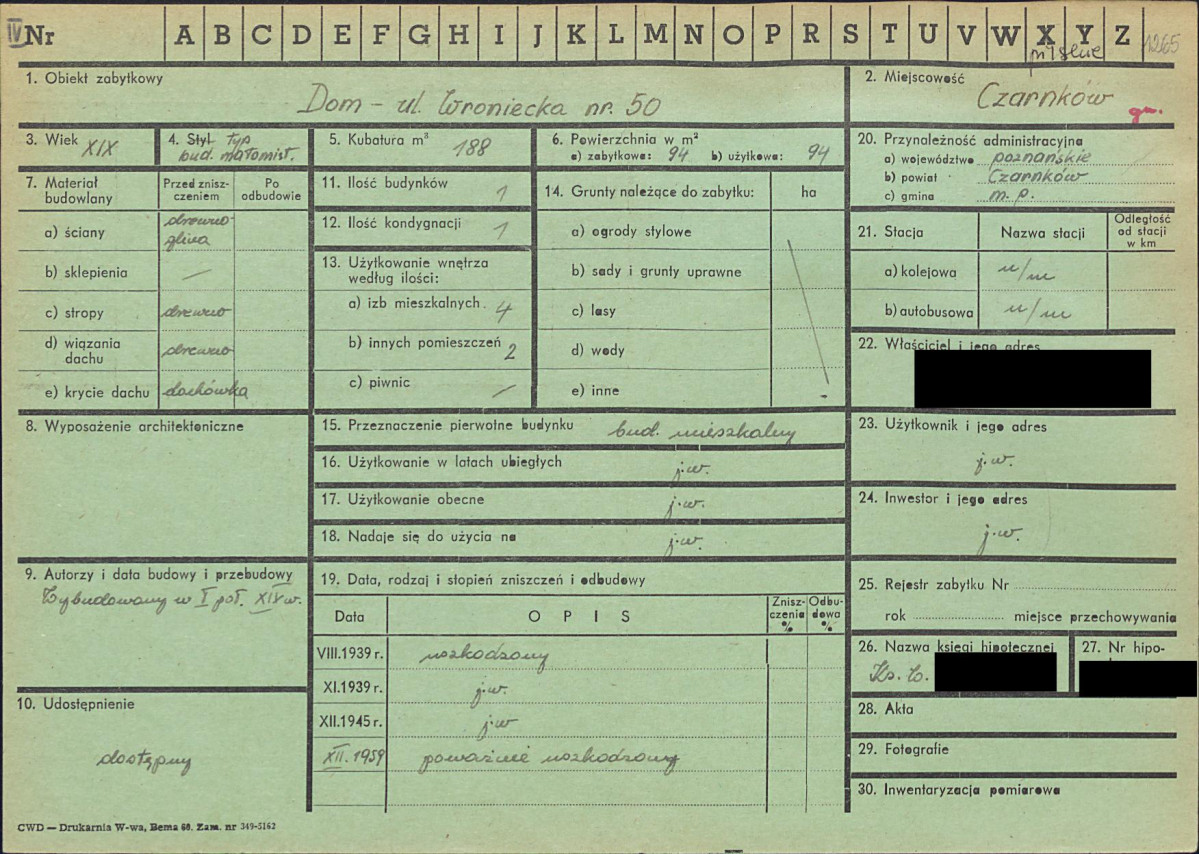 IV Nr A B C D E F G H I J K L M N O P R S T U V W X Y Z 1265
pilskie
1. Obiekt zabytkowy
Dom - ul. Wroniecka nr. 50
2. Miejscowość
Czarnków
gm.
3. Wiek XIX
4. Styl typ
bud. małomist.
5. Kubatura m³ 188
6. Powierzchnia w m²
a) zabytkowa: 94 b) użytkowa: 94
20. Przynależność administracyjna
a) województwo poznańskie
b) powiat Czarnków
c) gmina m. p.
7. Materiał budowlany
Przed zniszczeniem
Po odbudowie
a) ściany drewno glina
b) sklepienia —
c) stropy drewno
d) wiązania dachu drewno
e) krycie dachu dachówka
11. Ilość budynków 1
12. Ilość kondygnacji 1
13. Użytkowanie wnętrza
według ilości:
a) izb mieszkalnych 4
b) innych pomieszczeń 2
c) piwnic —
14. Grunty należące do zabytku: ha
a) ogrody stylowe
b) sady i grunty uprawne
c) lasy
d) wody
e) inne
21. Stacja Nazwa stacji Odległość od stacji w km
a) kolejowa n/m
b) autobusowa n/m
22. Właściciel i jego adres
8. Wyposażenie architektoniczne
15. Przeznaczenie pierwotne budynku bud. mieszkalny
16. Użytkowanie w latach ubiegłych j.w.
17. Użytkowanie obecne j.w.
18. Nadaje się do użycia na j.w.
23. Użytkownik i jego adres
j.w.
24. Inwestor i jego adres
j.w.
9. Autorzy i data budowy i przebudowy
Wybudowany w I poł. XIX w.
10. Udostępnienie
dostępny
19. Data, rodzaj i stopień zniszczeń i odbudowy
Data OPIS Zniszczenia % Odbudowa %
VIII.1939 r. uszkodzony
XI.1939 r. j.w.
XII.1945 r. j.w
XII. 1959 poważnie uszkodzony
25. Rejestr zabytku Nr
rok miejsce przechowywania
26. Nazwa księgi hipotecznej
Ks. W.
27. Nr hipo-
28. Akta
29. Fotografie
30. Inwentaryzacja pomiarowa
CWD — Drukarnia W-wa, Bema 60. Zam. nr 349-5162